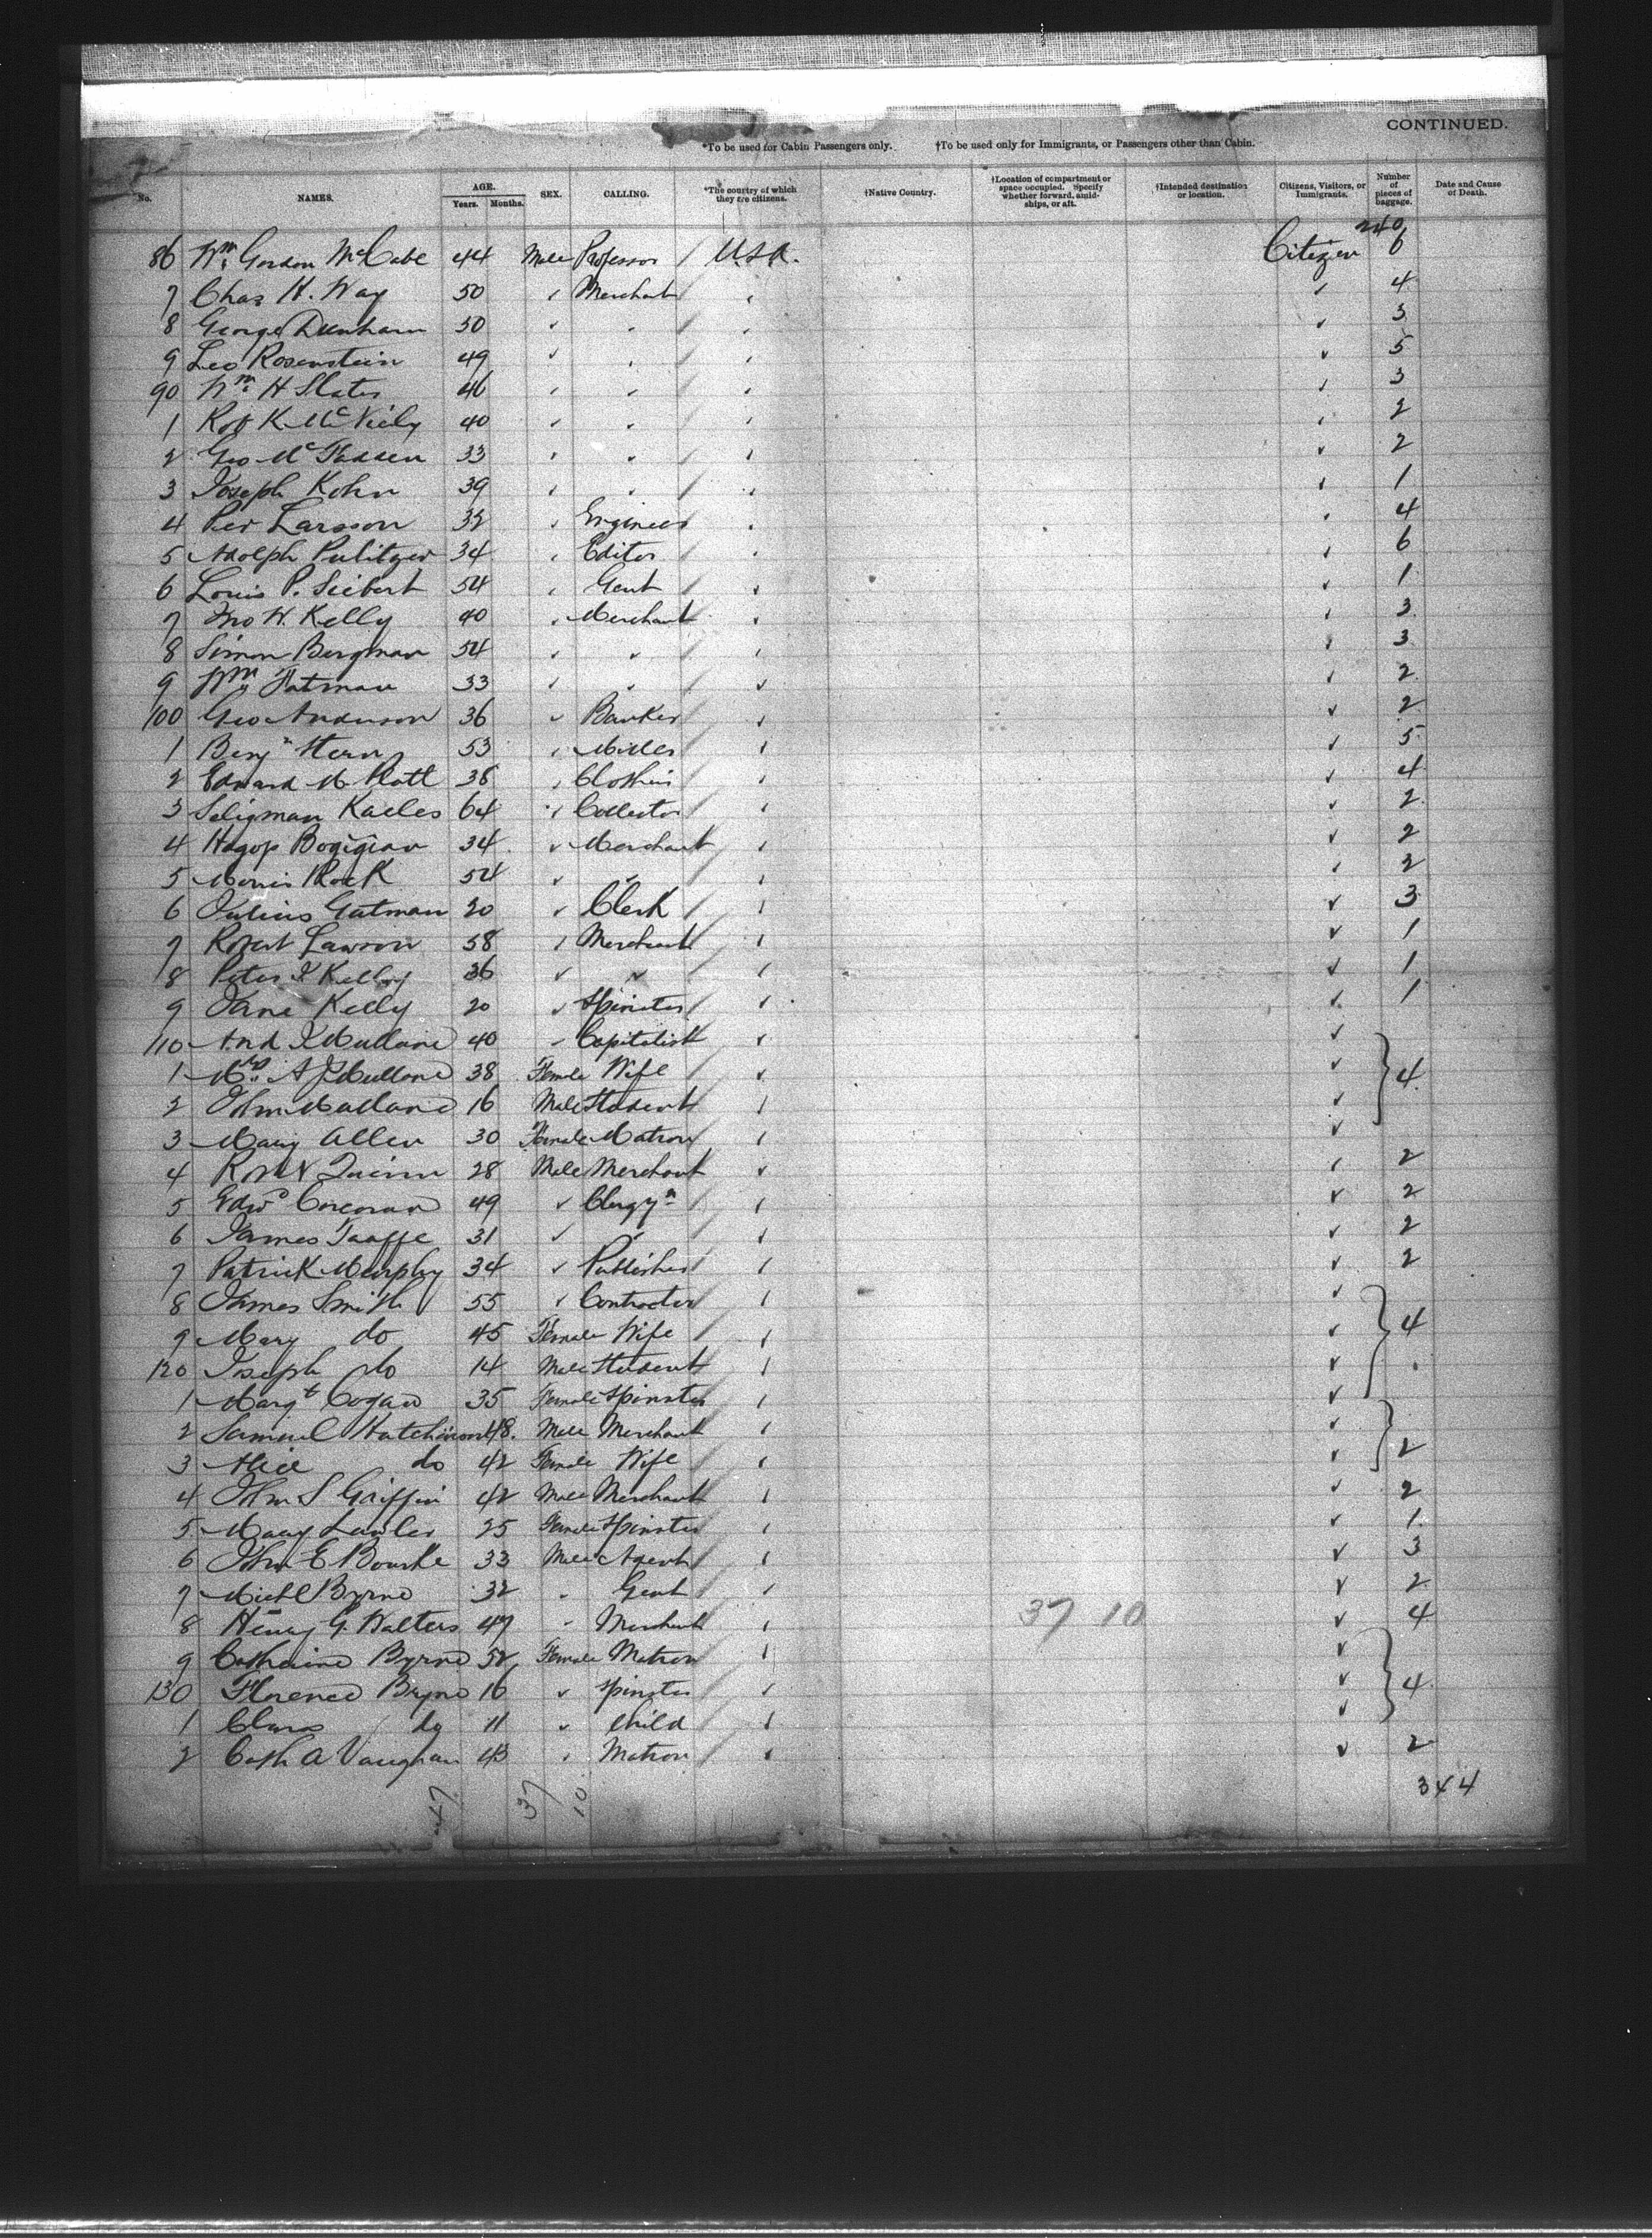 CONTINUED.
*To be used for Cabin Passengers only. †To be used only for Immigrants, or Passengers other than Cabin.
No. NAMES. AGE. Years. Months. SEX. CALLING. *The country of which they are citizens. †Native Country. †Location of compartment or space occupied. Specify whether forward, amidships, or aft. †Intended destination or location. Citizens, Visitors, or Immigrants. Number of pieces of baggage. Date and Cause of Death.
240
86 Wm Gordon McCabe 44 Male Professor U.S.A. Citizen 6
7 Chas H. Way 50 Merchant 4
8 George Dunham 50 3
9 Leo Rosenstein 49 5
90 Wm H Slater 46 3
1 Robt K McNeily 40 2
2 Geo McFadden 33 2
3 Joseph Kohn 39 1
4 Per Larsson 32 Engineer 4
5 Adolph Pulitzer 34 Editor 6
6 Louis P. Siebert 54 Gent 1
7 Jno W. Kelly 40 Merchant 3
8 Simon Bergman 54 3
9 Wm Fatman 33 2
100 Geo Anderson 36 Banker 2
1 Benjn Stern 53 Miller 5
2 Edward M. Platt 38 Clothier 4
3 Seligman 64 Collector 2
4 Hagop Bogigian 34 Merchant 2
5 Morris 54 2
6 Julius Gutman 20 Clerk 3
7 Robert Lawson 58 Merchant 1
8 Peter J Kelly 36 1
9 Jane Kelly 20 Spinster 1
110 And J Mullane 40 Capitalist
1 Mrs A J Mullane 38 Female Wife 4
2 John Mullane 16 Male Student
3 Mary Allen 30 Female Matron
4 Robt Quinn 28 Male Merchant 2
5 Edwd Corcoran 49 Clergyn 2
6 James Taaffe 31 2
7 Patrick Murphy 34 Publisher 2
8 James Smith 55 Contractor
9 Mary do 45 Female Wife 4
120 Joseph do 14 Male Student
1 Margt Cogan 35 Female Spinster
2 Samuel Hutchinson 48. Male Merchant
3 Alice do 42 Female Wife 2
4 John S Griffin 42 Male Merchant 2
5 Mary Lawler 25 Female Spinster 1
6 John E Bourke 33 Male Agent 3
7 Michl Byrne 32 Gent 2
8 Henry G. Walters 47 Merchant 37 10 4
9 Catherine Byrne 52 Female Matron
130 Florence Byrne 16 Spinster 4
1 Clara do 11 Child
2 Cath A Vaughan 43 Matron 2
344
47 37 10